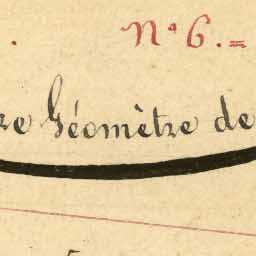 Nº 6.=
re Géomètre de